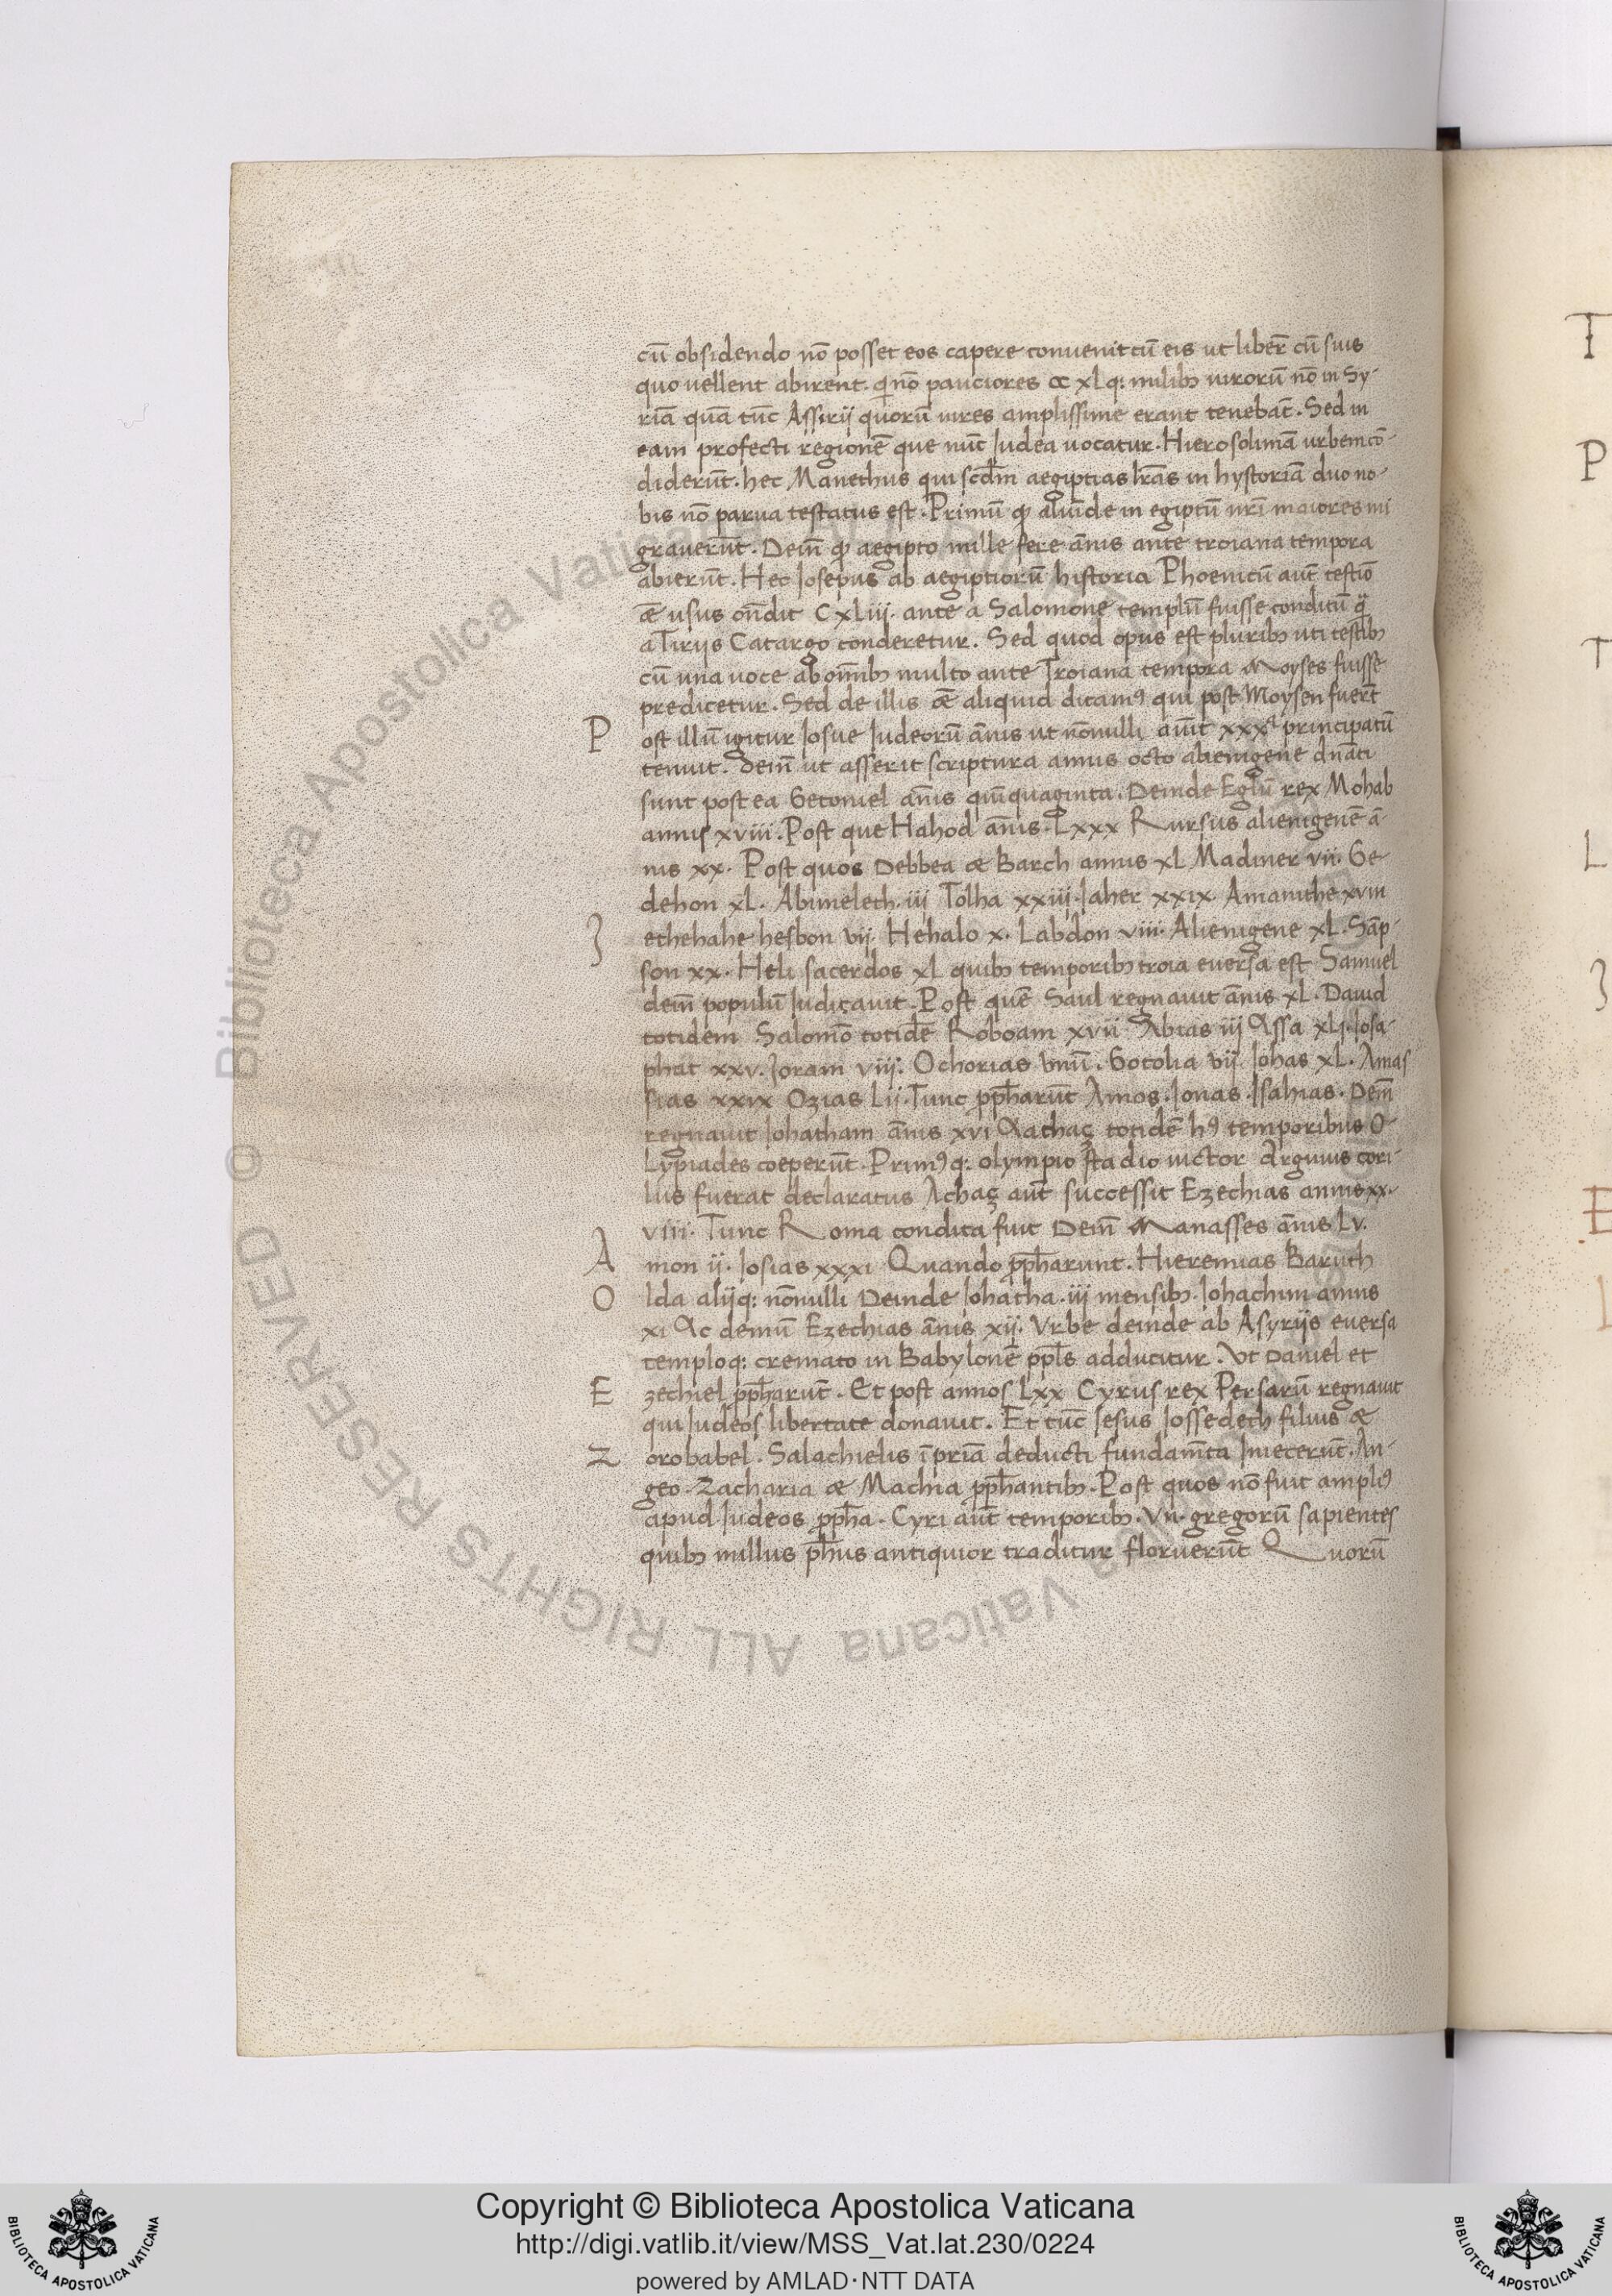 cū obsidendo nō posset eos capere conuenit cū eis ut liber̄ cū suis
quo uellent abirent. q nō pauciores cc xl q: milibꝫ uirorū nō in Sy-
riā quā tūc Assirij quorū uires amplissime erant tenebāt. Sed in
eam profecti regionē que nūc Iudea uocatur. Hierosolimā urbem cō-
diderūt. hec Manethus qui scdm̄ aegiptias lrās in hystoriā duo no-
bis nō parua testatus est. Primū ꝙ aliūde in egiptū nr̄i maiores mi
grauerūt. Dein̄ ꝙ aegipto mille fere ānis ante troiana tempora
abierūt. Hec Iosepus ab aegiptiorū historia Phoenicū aūt testiō
æ usus ōndit CXLiij. ante a Salomone templū fuisse conditū q̄
a Tirijs Catargo conderetur. Sed quod opus est pluribꝫ uti testibꝫ
cū una uoce ab omībꝫ multo ante Troiana tempora Moyses fuisse
predicetur. Sed de illis æ aliquid dicamꝰ qui post Moysen fuer̄t
P ost illū igitur Iosue Iudeorū ānis ut nōnulli aiūt xxx principatū
tenuit. Dein̄ ut asserit scriptura annis octo alienigene dnāti
sunt post ea Getoniel ānis quīquaginta. Deinde Eglū rex Mohab
annis xviii. Post que Hahod ānis. Lxxx Rursus alienigenē ā-
nis xx. Post quos Debbea æ Barch annis xl Madiner vii. Ge-
dehon xl. Abimelech. iij Tolha xxiij. Iaher xxix. Amanithe xviii
ethehahe hesbon vij. Hehalo x. Labdon viii. Alienigene xl. Sāp-
son xx. Heli sacerdos xl quibꝫ temporibꝫ troia euersa est Samuel
dein̄ populū Iudicauit. Post quē Saul regnauit ānis xl. Dauid
totidem Salomō totidē Roboam xvii Abias iij Assa xlj. Iosa-
phat xxv. Ioram viij. Ochorias vnū. Gotolia vij. Iohas XL. Amas
sias xxix Ozias Lij. Tunc ꝓph̄arūt Amos. Ionas. Isahias. Dein̄
regnauit Iohatham ānis xvi Aachaz totidē hꝰ temporibus O-
Lypiades coeperūt. Primꝰ q: olympio stadio uictor Arguius cori-
lus fuerat declaratus Achaz aūt successit Ezechias annis xx-
viii. Tunc Roma condita fuit Dein̄ Manasses ānis Lv.
A mon ij. Iosias xxxi Quando ꝓph̄arunt. Hieremias Baruch
O lda alijq: nōnulli Deinde Iohatha. iij mensibꝫ. Iohachim annis
xi Ac demū Ezechias ānis xij. Vrbe deinde ab Asyrijs euersa
temploq: cremato in Babylonē ppl̄s adducitur. Vt Daniel et
E zechiel ꝓph̄arūt. Et post annos Lxx Cyrus rex Persarū regnauit
qui Iudeos libertate donauit. Et tūc Iesus Iossedech filius æ
Z orobabel. Salachielis ī priā deducti fundam̄ta Iniecerūt. An-
geo. Zacharia æ Machia ꝓph̄antibꝫ. Post quos nō fuit ampliꝰ
apud Iudeos ꝓph̄a. Cyri aūt temporibꝫ. Vii. gregorū sapientes
quibꝫ nullus ph̄us antiquior traditur floruerūt Quorū
Copyright © Biblioteca Apostolica Vaticana
http://digi.vatlib.it/view/MSS_Vat.lat.230/0224
powered by AMLAD·NTT DATA